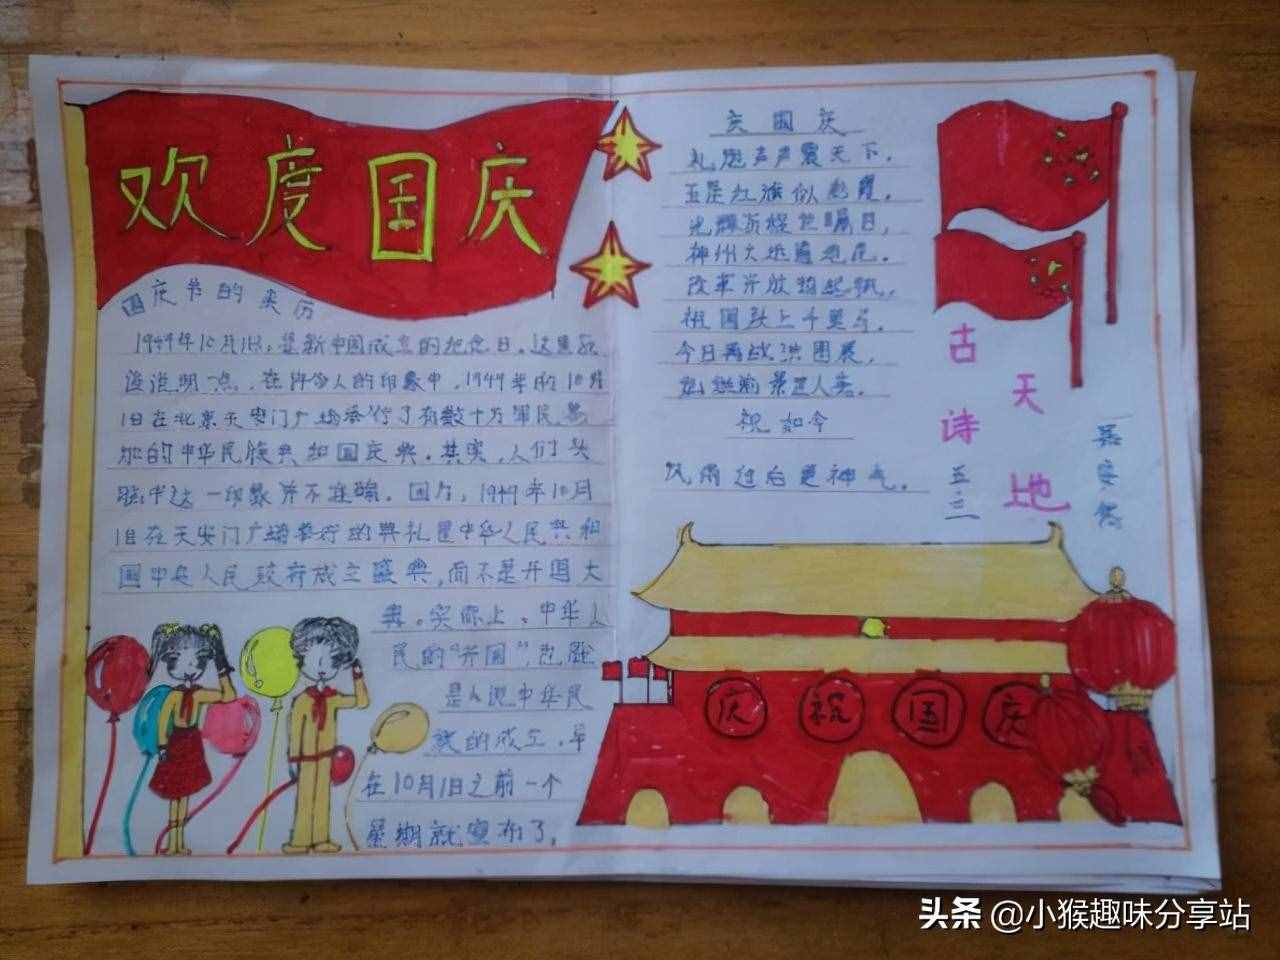 欢度国庆
国庆节的来历
1949年10月1日,是新中国成立的纪念日。这里应
该说明一点,在许多人的印象中,1949年的10月
1日在北京天安门广场举行了有数十万军民参
加的中华民族共和国开庆典。其实,人们头
脑中这一印象并不准确。因为,1949年10月
1日在天安门广场举行的典礼是中华人民共和
国中央人民政府成立盛典,而不是开国大
典。实际上,中华人
民的“开国”,也就
是人说中华民
族的成立,早
在10月1日之前一个
星期就宣布了。
庆国庆
礼炮声声震天下,
五星红旗似彩霞。
光辉历程世瞩目,
神州大地遍地花。
改革开放
祖国跃上千里马。
今日再战洪图展,
前景更人夸。
祝如今
风雨过后更神气。
古诗
天地
五三
庆祝国庆
头条 @小猴趣味分享站